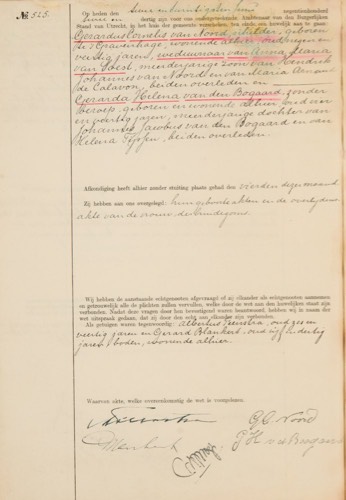 No 525.
Op heden den
negentienhonderd
dertig zijn voor ons ondergeteekende, Ambtenaar van den Burgerlijken
Stand van Utrecht, in het huis der gemeente verschenen, ten einde een huwelijk aan te gaan:
Gerardus Cornelis van Noord, schilder, geboren
te 's Gravenhage, wonende alhier, oud negen en
veertig jaren, weduwnaar van Anna Maria
van Soest, meerderjarige zoon van Hendrik
Johannes van Noord en van Maria
de Calavon, beiden overleden en
Gerarda Helena van den Bogaard, zonder
beroep, geboren en wonende alhier, oud een
en veertig jaren, meerderjarige dochter van
Johannes Jacobus van den Bogaard en van
Helena, beiden overleden.
Afkondiging heeft alhier zonder stuiting plaats gehad den vierden dezer maand
Zij hebben aan ons overgelegd: hun geboorteakten en de overlijdens
akte van de vrouw des bruidegoms.
Wij hebben de aanstaande echtgenooten afgevraagd of zij elkander als echtgenooten aannemen
en getrouwelijk al de plichten zullen vervullen, welke door de wet aan den huwelijken staat zijn
verbonden. Nadat deze vragen door hen bevestigend waren beantwoord, hebben wij in naam der
wet uitspraak gedaan, dat zij door den echt aan elkander zijn verbonden.
Als getuigen waren tegenwoordig: Albertus, oud zes en
veertig jaren en Gerard Blankert, oud vijf en dertig
jaren, boden, wonende alhier.
Waarvan akte, welke overeenkomstig de wet is voorgelezen.
G C Noord
G H vd Bogaard